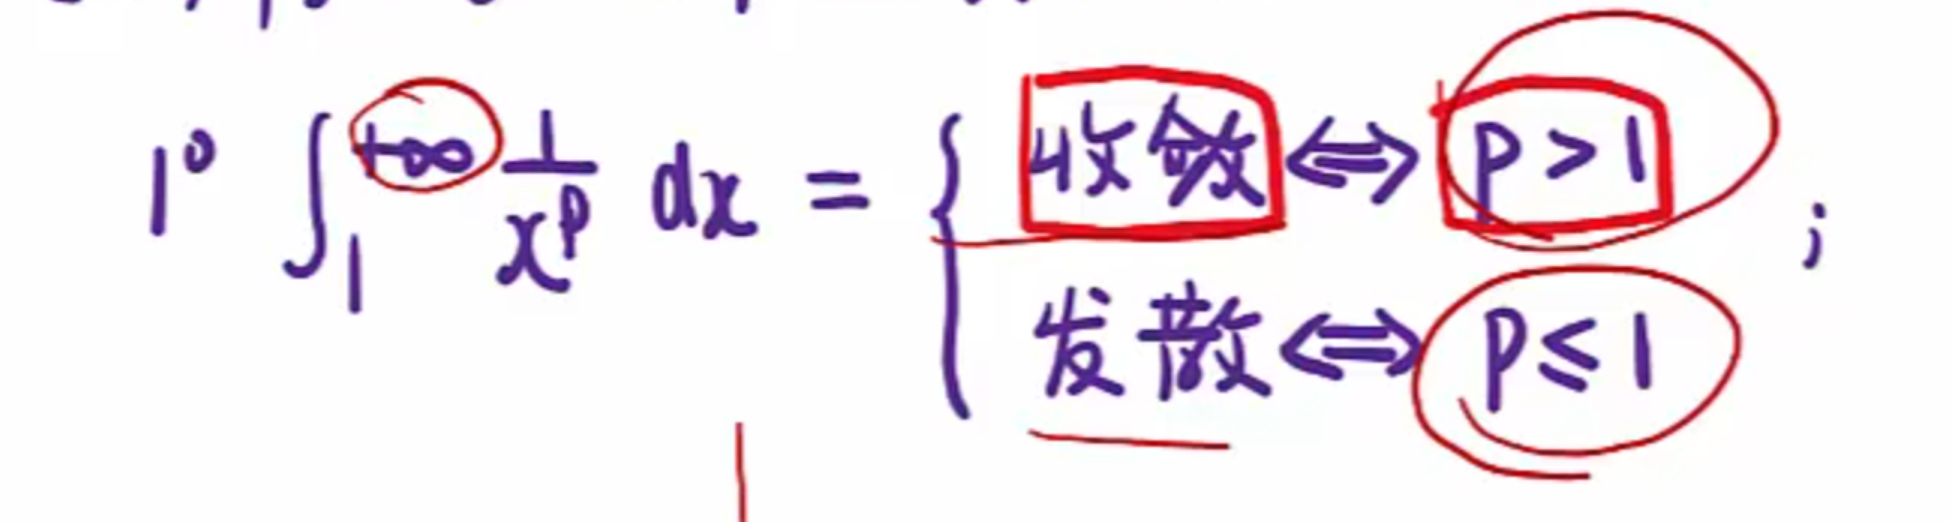 1° ∫₁^{+∞} 1/x^p dx = { 收敛 ⇔ p > 1
发散 ⇔ p ≤ 1 ;